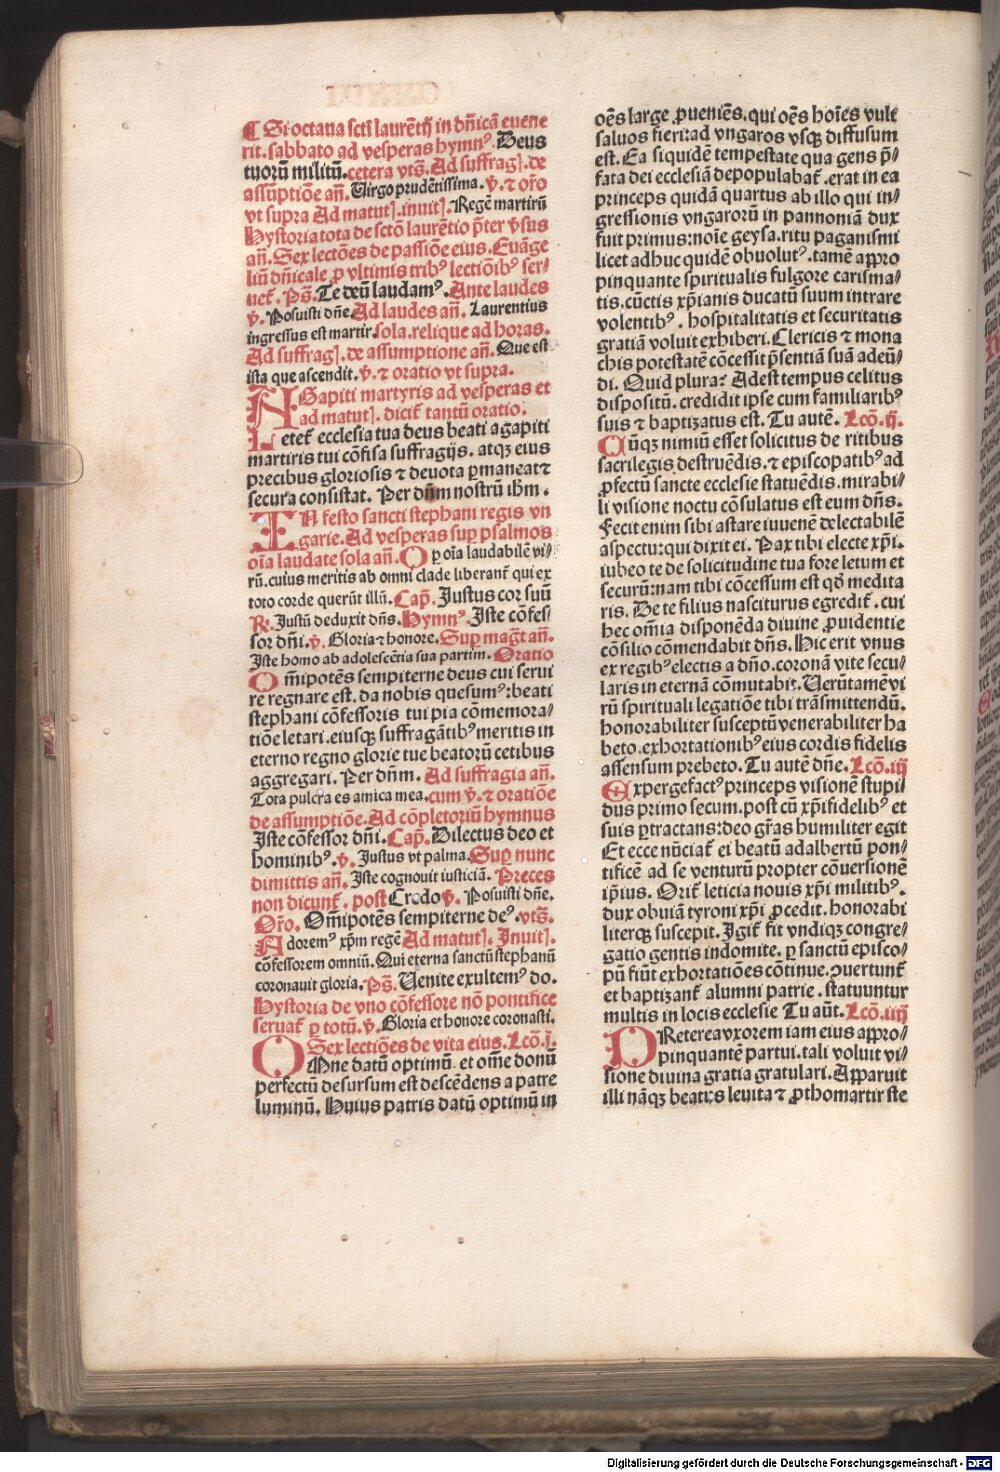 ¶ Si octaua scti laurētij in dñicā euene
rit. sabbato ad vesperas hymnꝰ. Deus
tuorū militū. cetera vts̄. Ad suffragl. de
assūptiōe añ. Virgo prudētissima. ꝟ. ⁊ oro
vt supra Ad matutl. inuitl. Regē martirū
Hystoria tota de sctō laurētio p̄ter ꝟsus
añ. Sex lectōes de passiōe eius. Euāge
liū dñicale ꝓ vltimis tribꝰ lectiōibꝰ ser-
uet̄. Ps̄. Te deū laudamꝰ. Ante laudes
ꝟ. Posuisti dñe. Ad laudes añ. Laurentius
ingressus est martir. sola. relique ad horas.
Ad suffragl. de assumptione añ. Que est
ista que ascendit. ꝟ. ⁊ oratio vt supra.
Agapiti martyris ad vesperas et
ad matutl. dicit̄ tantū oratio.
Letet̄ ecclesia tua deus beati agapiti
martiris tui cōfisa suffragijs. atqꝫ eius
precibus gloriosis ⁊ deuota ꝑmaneat ⁊
secura consistat. Per dñm nostrū ihm.
IN festo sancti stephani regis vn
garie. Ad vesperas suꝑ psalmos
oīa laudate sola añ. O ꝑ oīa laudabilē vi/
rū. cuius meritis ab omni clade liberant̄ qui ex
toto corde querūt illū. Cap̄. Justus cor suū
R. Justū deduxit dñs. Hymnꝰ. Jste cōfes/
sor dñi. ꝟ. Gloria ⁊ honore. Suꝑ mag̅t añ.
Jste homo ab adolescētia sua partim. Oratio
Om̄ipotēs sempiterne deus cui serui
re regnare est. da nobis quesumꝰ: beati
stephani cōfessoris tui pia cōmemora/
tiōe letari. eiusqꝫ suffragātibꝰ meritis in
eterno regno glorie tue beatorū cetibus
aggregari. Per dñm. Ad suffragia añ.
Tota pulcra es amica mea. cum ꝟ. ⁊ oratiōe
de assumptiōe. Ad cōpletoriū hymnus
Jste cōfessor dñi. Cap̄. Dilectus deo et
hominibꝰ. ꝟ. Justus vt palma. Suꝑ nunc
dimittis añ. Jste cognouit iusticiā. Preces
non dicunt̄. post Credo ꝟ. Posuisti dñe.
Oro. Om̄ipotēs sempiterne deꝰ. vts̄.
Adoremꝰ xpm regē Ad matutl. Inuitl.
cōfessorem omniū. Qui eterna sanctū stephanū
coronauit gloria. Ps̄. Venite exultemꝰ do.
Hystoria de vno cōfessore nō pontifice
seruat̄ ꝑ totū. ꝟ. Gloria et honore coronasti.
Sex lectiōes de vita eius. Lcō. j.
OMne datū optimū et om̄e donū
perfectū desursum est descēdens a patre
luminū. Huius patris datū optimū in
oēs large ꝓueniēs. qui oēs hoīes vult
saluos fieri: ad vngaros vsqꝫ diffusum
est. Ea siquidē tempestate qua gens p̄/
fata dei ecclesiā depopulabat̄. erat in ea
princeps quidā quartus ab illo qui in/
gressionis vngarorū in pannoniā dux
fuit primus: noīe geysa. ritu paganismi
licet adhuc quidē obuolutꝰ. tamē appro
pinquante spiritualis fulgore carisma/
tis. cūctis xp̄ianis ducatū suum intrare
volentibꝰ. hospitalitatis et securitatis
gratiā voluit exhiberi. Clericis ⁊ mona
chis potestatē cōcessit p̄sentiā suā adeū/
di. Quid plura? Adest tempus celitus
dispositū. credidit ipse cum familiaribꝰ
suis ⁊ baptizatus est. Tu autē. Lcō. ij.
Cūqꝫ nimiū esset solicitus de ritibus
sacrilegis destruēdis. ⁊ episcopatibꝰ ad
ꝓfectū sancte ecclesie statuēdis. mirabi/
li visione noctu cōsulatus est eum dñs.
Fecit enim sibi astare iuuenē delectabilē
aspectu: qui dixit ei. Pax tibi electe xp̄i.
iubeo te de solicitudine tua fore letum et
securū: nam tibi cōcessum est qd̄ medita
ris. De te filius nasciturus egredit̄. cui
hec om̄ia disponēda diuine ꝓuidentie
cōsilio cōmendabit dñs. Hic erit vnus
ex regibꝰ electis a dño. coronā vite secu/
laris in eternā cōmutabit. Uerūtamē vi
rū spirituali legatiōe tibi trāsmittendū.
honorabiliter susceptū venerabiliter ha
beto. exhortationibꝰ eius cordis fidelis
assensum prebeto. Tu autē dñe. Lcō. iij
Expergefactꝰ princeps visionē stupi
dus primo secum. post cū xp̄i fidelibꝰ et
suis ꝑtractans: deo gr̄as humiliter egit
Et ecce nūciat̄ ei beatū adalbertū pon/
tificē ad se venturū propter cōuersionē
ip̄ius. Orit̄ leticia nouis xp̄i militibꝰ.
dux obuiā tyroni xp̄i ꝓcedit. honorabi
literqꝫ suscepit. Jgit̄ fit vndiqꝫ congre/
gatio gentis indomite. ꝑ sanctū episco/
pū fiūt exhortatiōes cōtinue. ↄuertunt̄
et baptizant̄ alumni patrie. statuuntur
multis in locis ecclesie Tu aūt. Lcō. iiij
PReterea vxorem iam eius appro/
pinquantē partui. tali voluit vi/
sione diuina gratia gratulari. Apparuit
illi nāqꝫ beatus leuita ⁊ ꝓthomartir ste
Digitalisierung gefördert durch die Deutsche Forschungsgemeinschaft - DFG